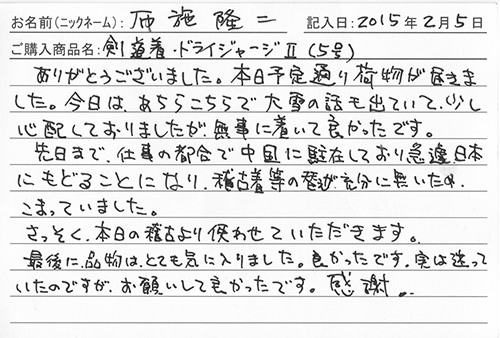 お名前(ニックネーム): 布施隆二 記入日: 2015年2月5日
ご購入商品名: 剣道着・ドライジャージⅡ(5号)
ありがとうございました。本日予定通り荷物が届きま
した。今日は、あちらこちらで大雪の話も出ていて、少し
心配しておりましたが、無事に着いて良かったです。
先日まで、仕事の都合で中国に駐在しており急遽日本
にもどることになり、稽古着等の替が充分に無いため、
こまっていました。
さっそく、本日の稽古より使わせていただきます。
最後に、品物は、とても気に入りました。良かったです。実は迷って
いたのですが、お願いして良かったです。感謝。